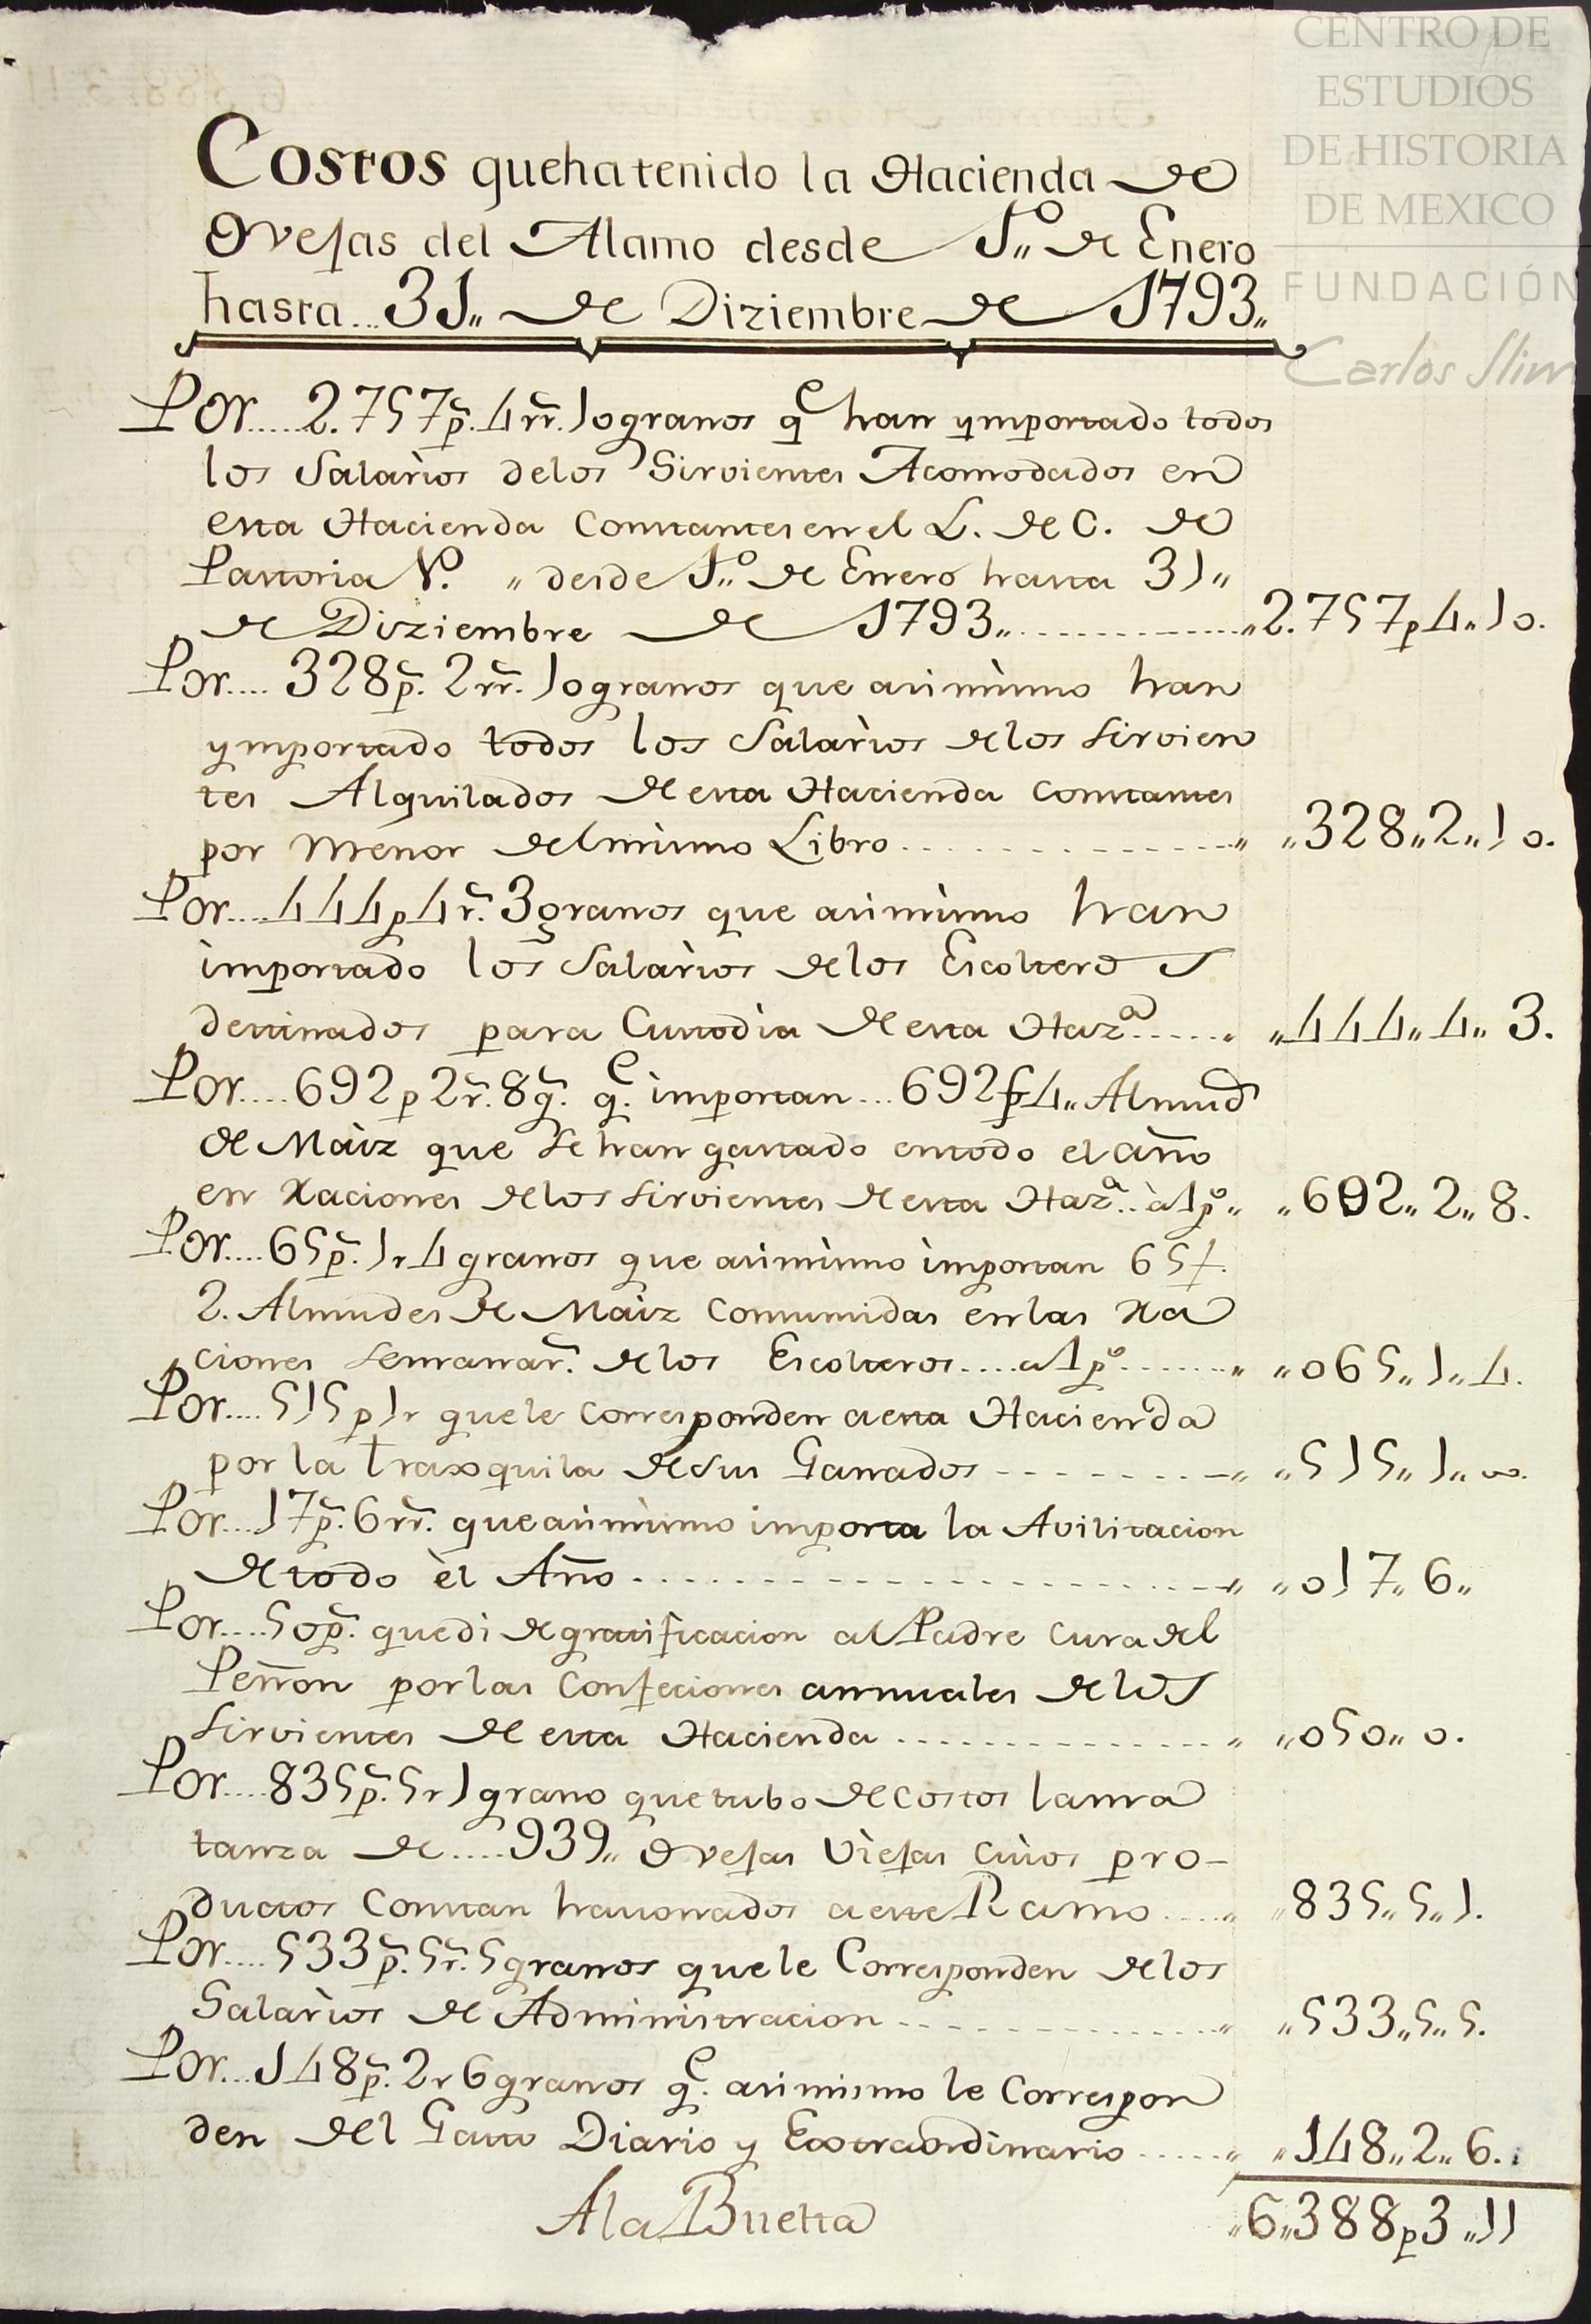 CENTRO DE
ESTUDIOS
DE HISTORIA
DE MEXICO
FUNDACIÓN
Carlos Slim
Costos que ha tenido la Hacienda de
Ovejas del Alamo desde 1º,, de Enero
hasta... 31,, de Diziembre de 1793,,
Por.....2.757p̃.4rr̃.10granos q̃e han ymportado todos
los Salarios delos Sirvientes Acomodados en
esta Hacienda Constantes en el L. de C. de
Pastoria Nº. ,, desde 1º,, de Enero hasta 31,,
de Diziembre de 1793,,............,,2.757p4,,10.
Por.... 328p̃. 2rr̃. 10granos que asimismo han
ymportado todos los Salarios delos Sirvien
tes Alquilados de esta Hacienda Constantes
por Menor del mismo Libro..............,, ,,328,,2,,10.
Por....444p4r̃.3granos que asimismo han
importado los Salarios delos Escolteros
destinados para Custodia de esta Hazª......,, ,,444,,4,,3.
Por....692p2r̃.8g̃. q̃e. importan...692f4,, Almud
de Maiz que se han gastado en todo el año
en raciones delos Sirvientes de esta Hazª.. à1pº,, ,,692,,2,,8.
Por....65p̃.1r4granos que asimismo importan 65f.
2. Almudes de Maiz Consumidas en las ra
ciones Semanar̃. delos Escolteros....a1pº.......,, ,,065,,1,,4.
Por....515p1r que le corresponden a esta Hacienda
por la traxquila de sus Ganados - - - - - - -,, ,,515,,1,,00.
Por...17p̃.6rr̃. que asimismo importa la Avilitacion
de todo èl Año...................,, ,,017,,6,,
Por....50p̃. que di de gratificacion al Padre Cura del
Peñon por las Confeciones annuales delos
Sirvientes de esta Hacienda..............,, ,,050,,0.
Por....835p̃.5r1grano que tubo de costos lama
tanza de....939,, Ovejas Viejas cuios pro-
ductos Constan havonados a este Ramo.....,, ,,835,,5,,1.
Por....533p̃.5r̃.5granos que le Corresponden delos
Salarios de Administracion..............,, ,,533,,5,,5.
Por...148p̃.2r6granos q̃e. asimismo le Correspon
den del Gasto Diario y Extraordinario.....,, ,,148,,2,,6.
A la Buelta ,,6,,388p3,,11